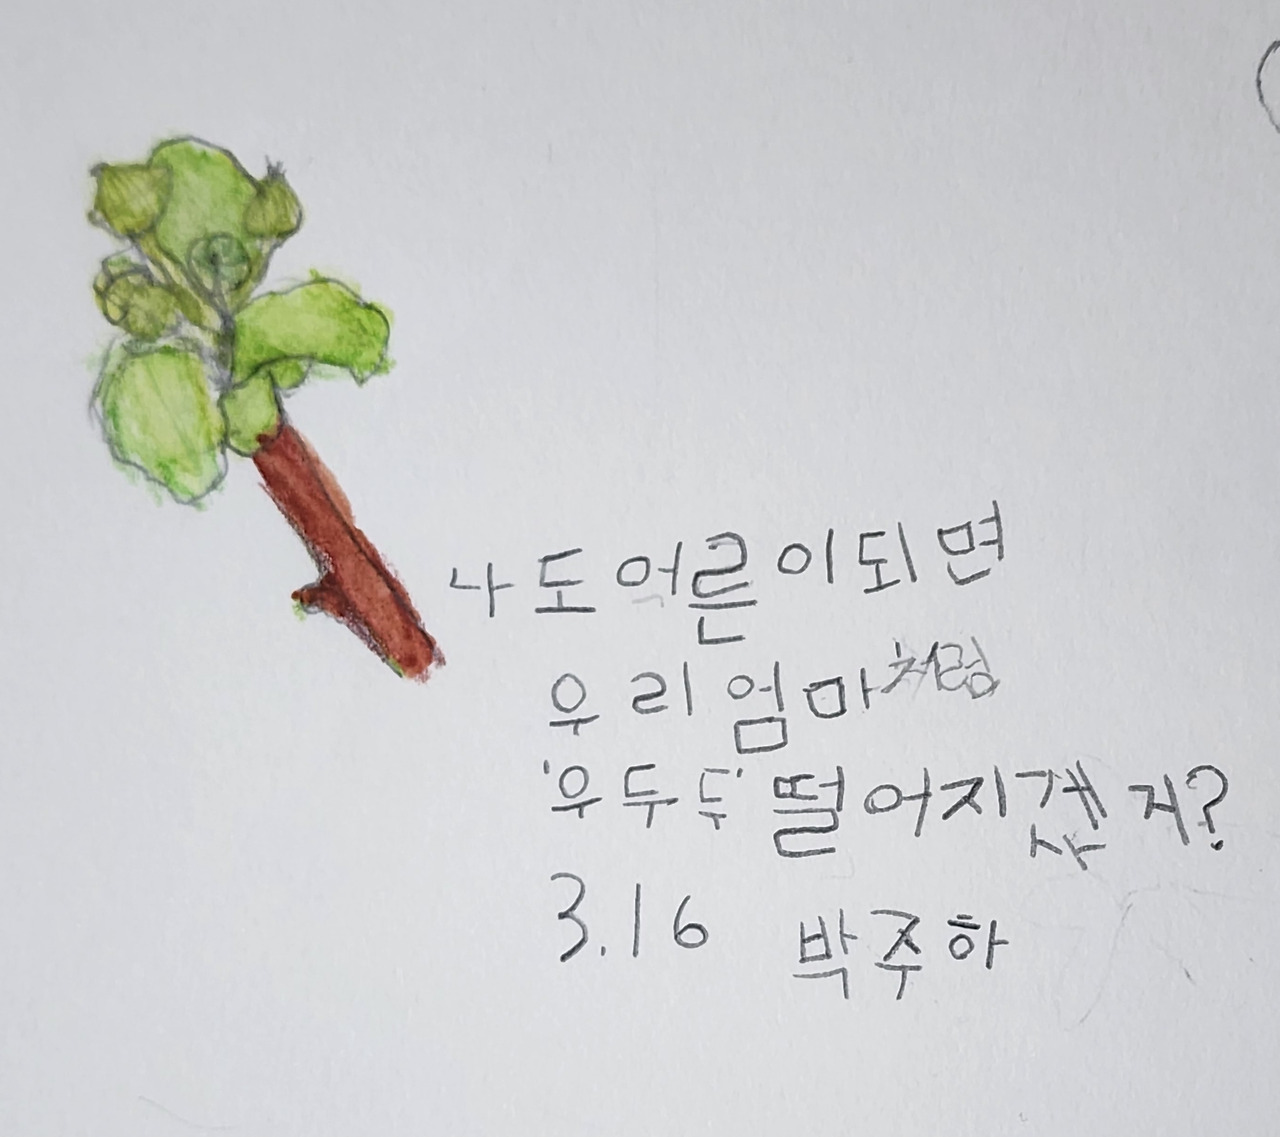 나도 어른이되면
우리 엄마처럼
'우두두' 떨어지겠지?
3.16 박주하